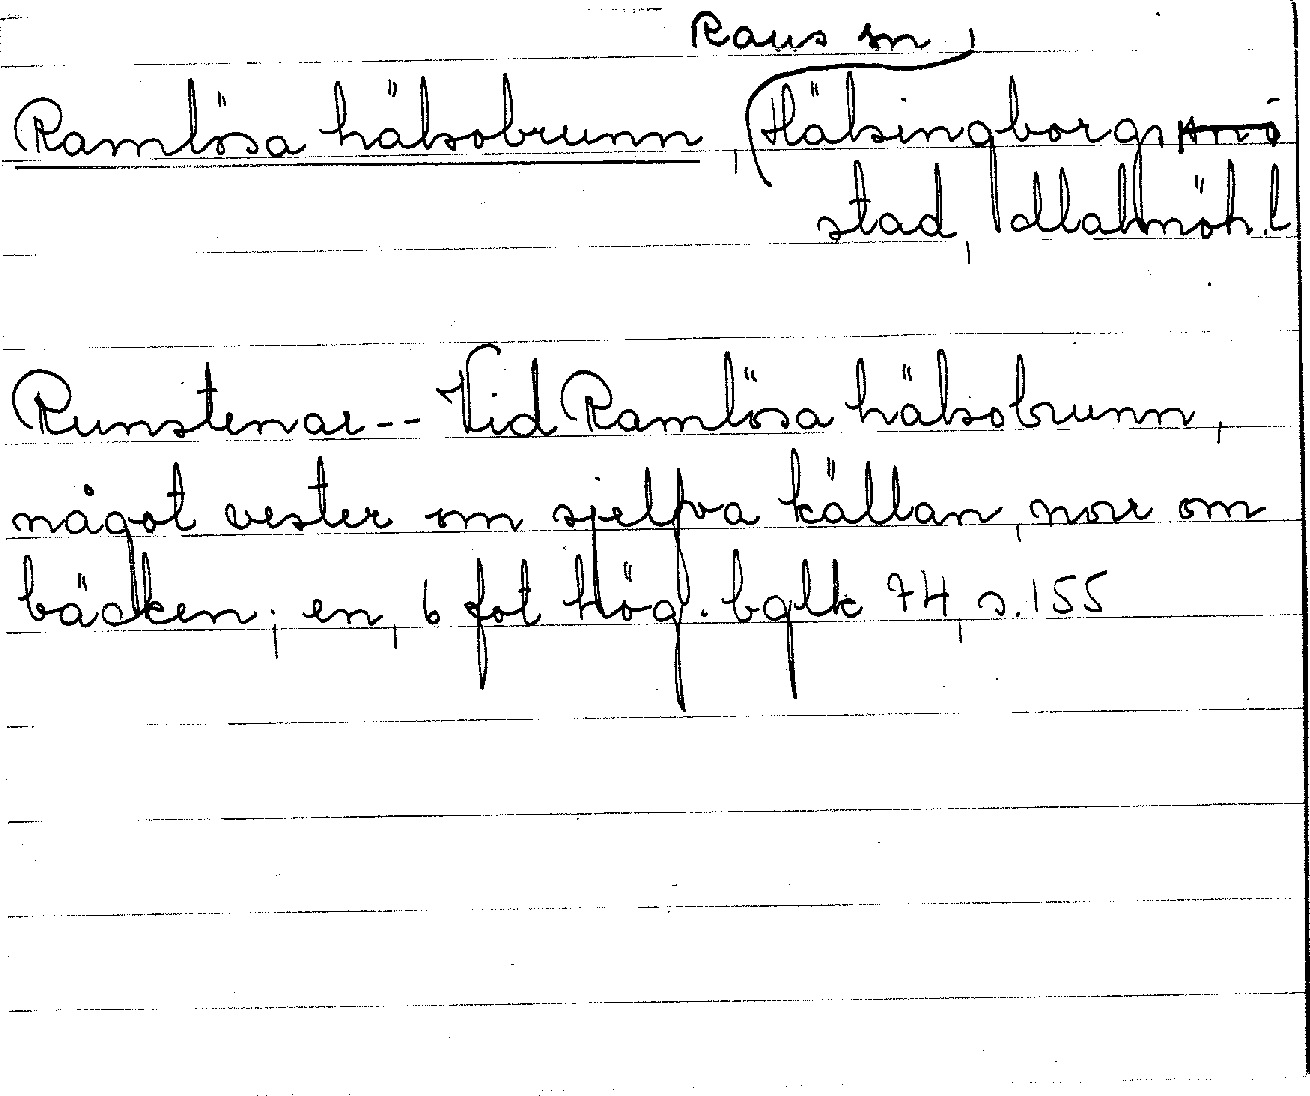 Raus sn,
Ramlösa hälsobrunn, Hälsingborgs
stad, Malmöh. l
Runstenar -- Vid Ramlösa hälsobrunn,
något vester om sjelfva källan, norr om
bäcken; en, 6 fot hög. bqlk 74, s. 155